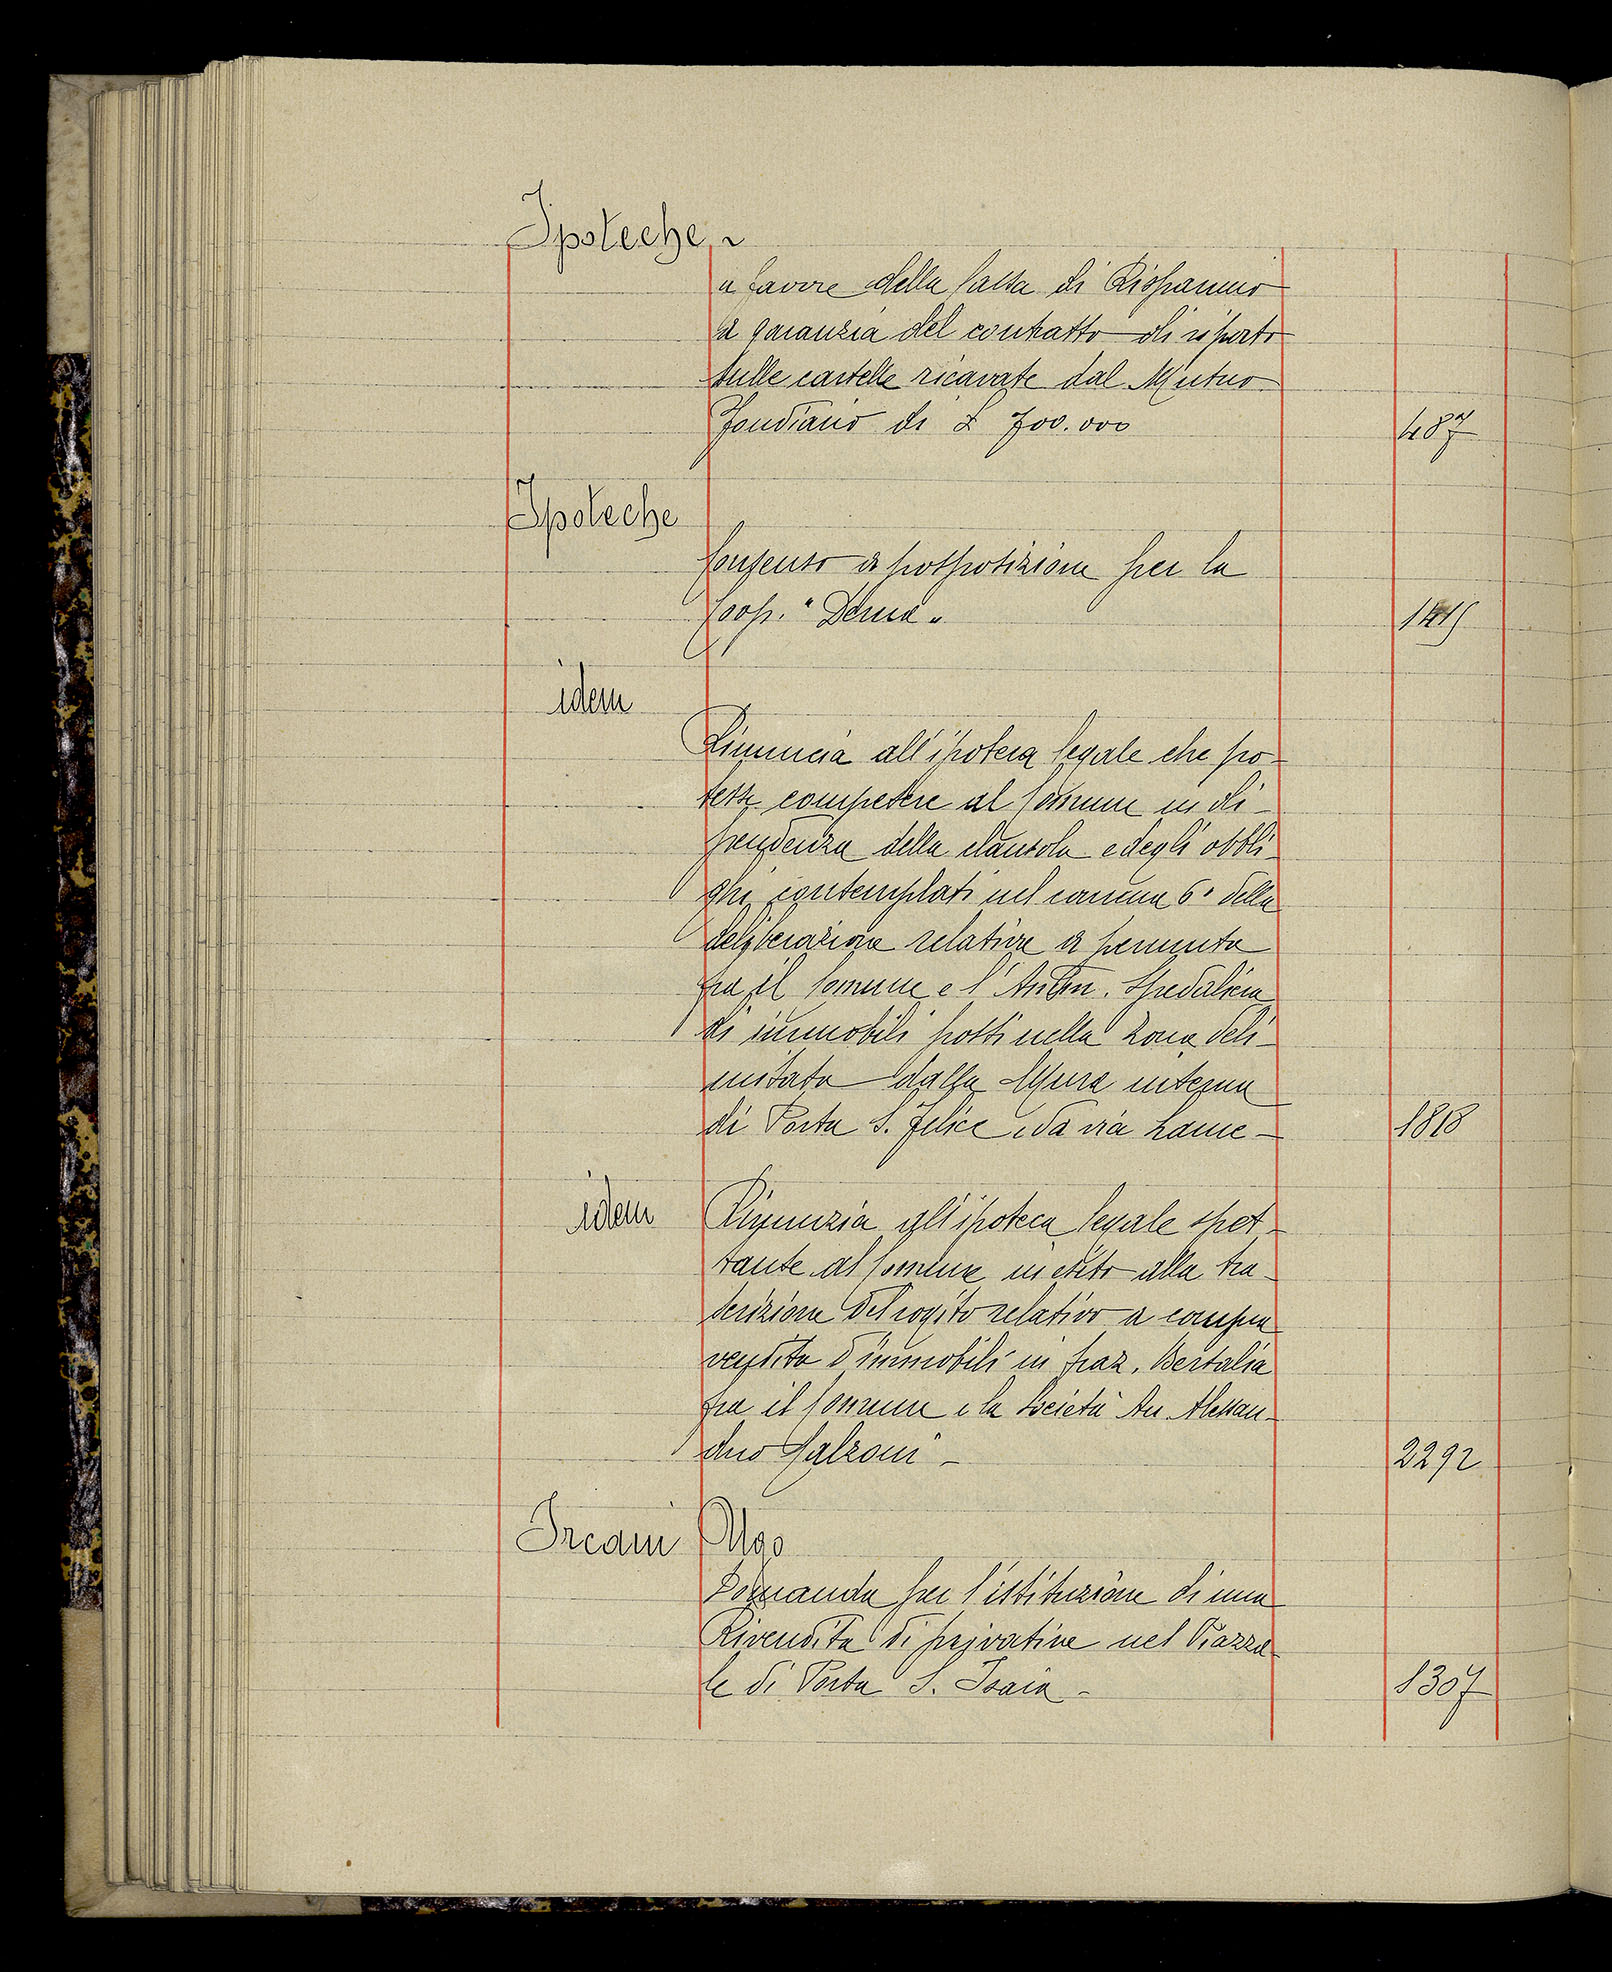 Ipoteche
a favore della Cassa di Risparmio
a garanzia del contratto di riporto
sulle cartelle ricavate dal Mutuo
Fondiario di £ 700.000 487
Ipoteche
Consenso a posposizione per la
Coop. " " 1415
idem
Rinuncia all'ipoteca legale che po-
tesse competere al Comune in di-
pendenza della clausola e degli obbli-
ghi contemplati nel comma 6° della
deliberazione relativa a permuta
fra il Comune e l'Amm. Spedaliera
di immobili posti nella zona deli-
mitata dalla Mura interna
di Porta S. Felice e da via Lame - 1818
idem Rinunzia all'ipoteca legale spet-
tante al Comune in esito alla tra-
scrizione del rogito relativo a compra
vendita d'immobili in fraz. Bertalia
fra il Comune e la Società An. Alessan-
dro Calzoni - 2292
Ircani Ugo
Domanda per l'istituzione di una
Rivendita di privative nel Piazza-
le di Porta S. Isaia - 1307